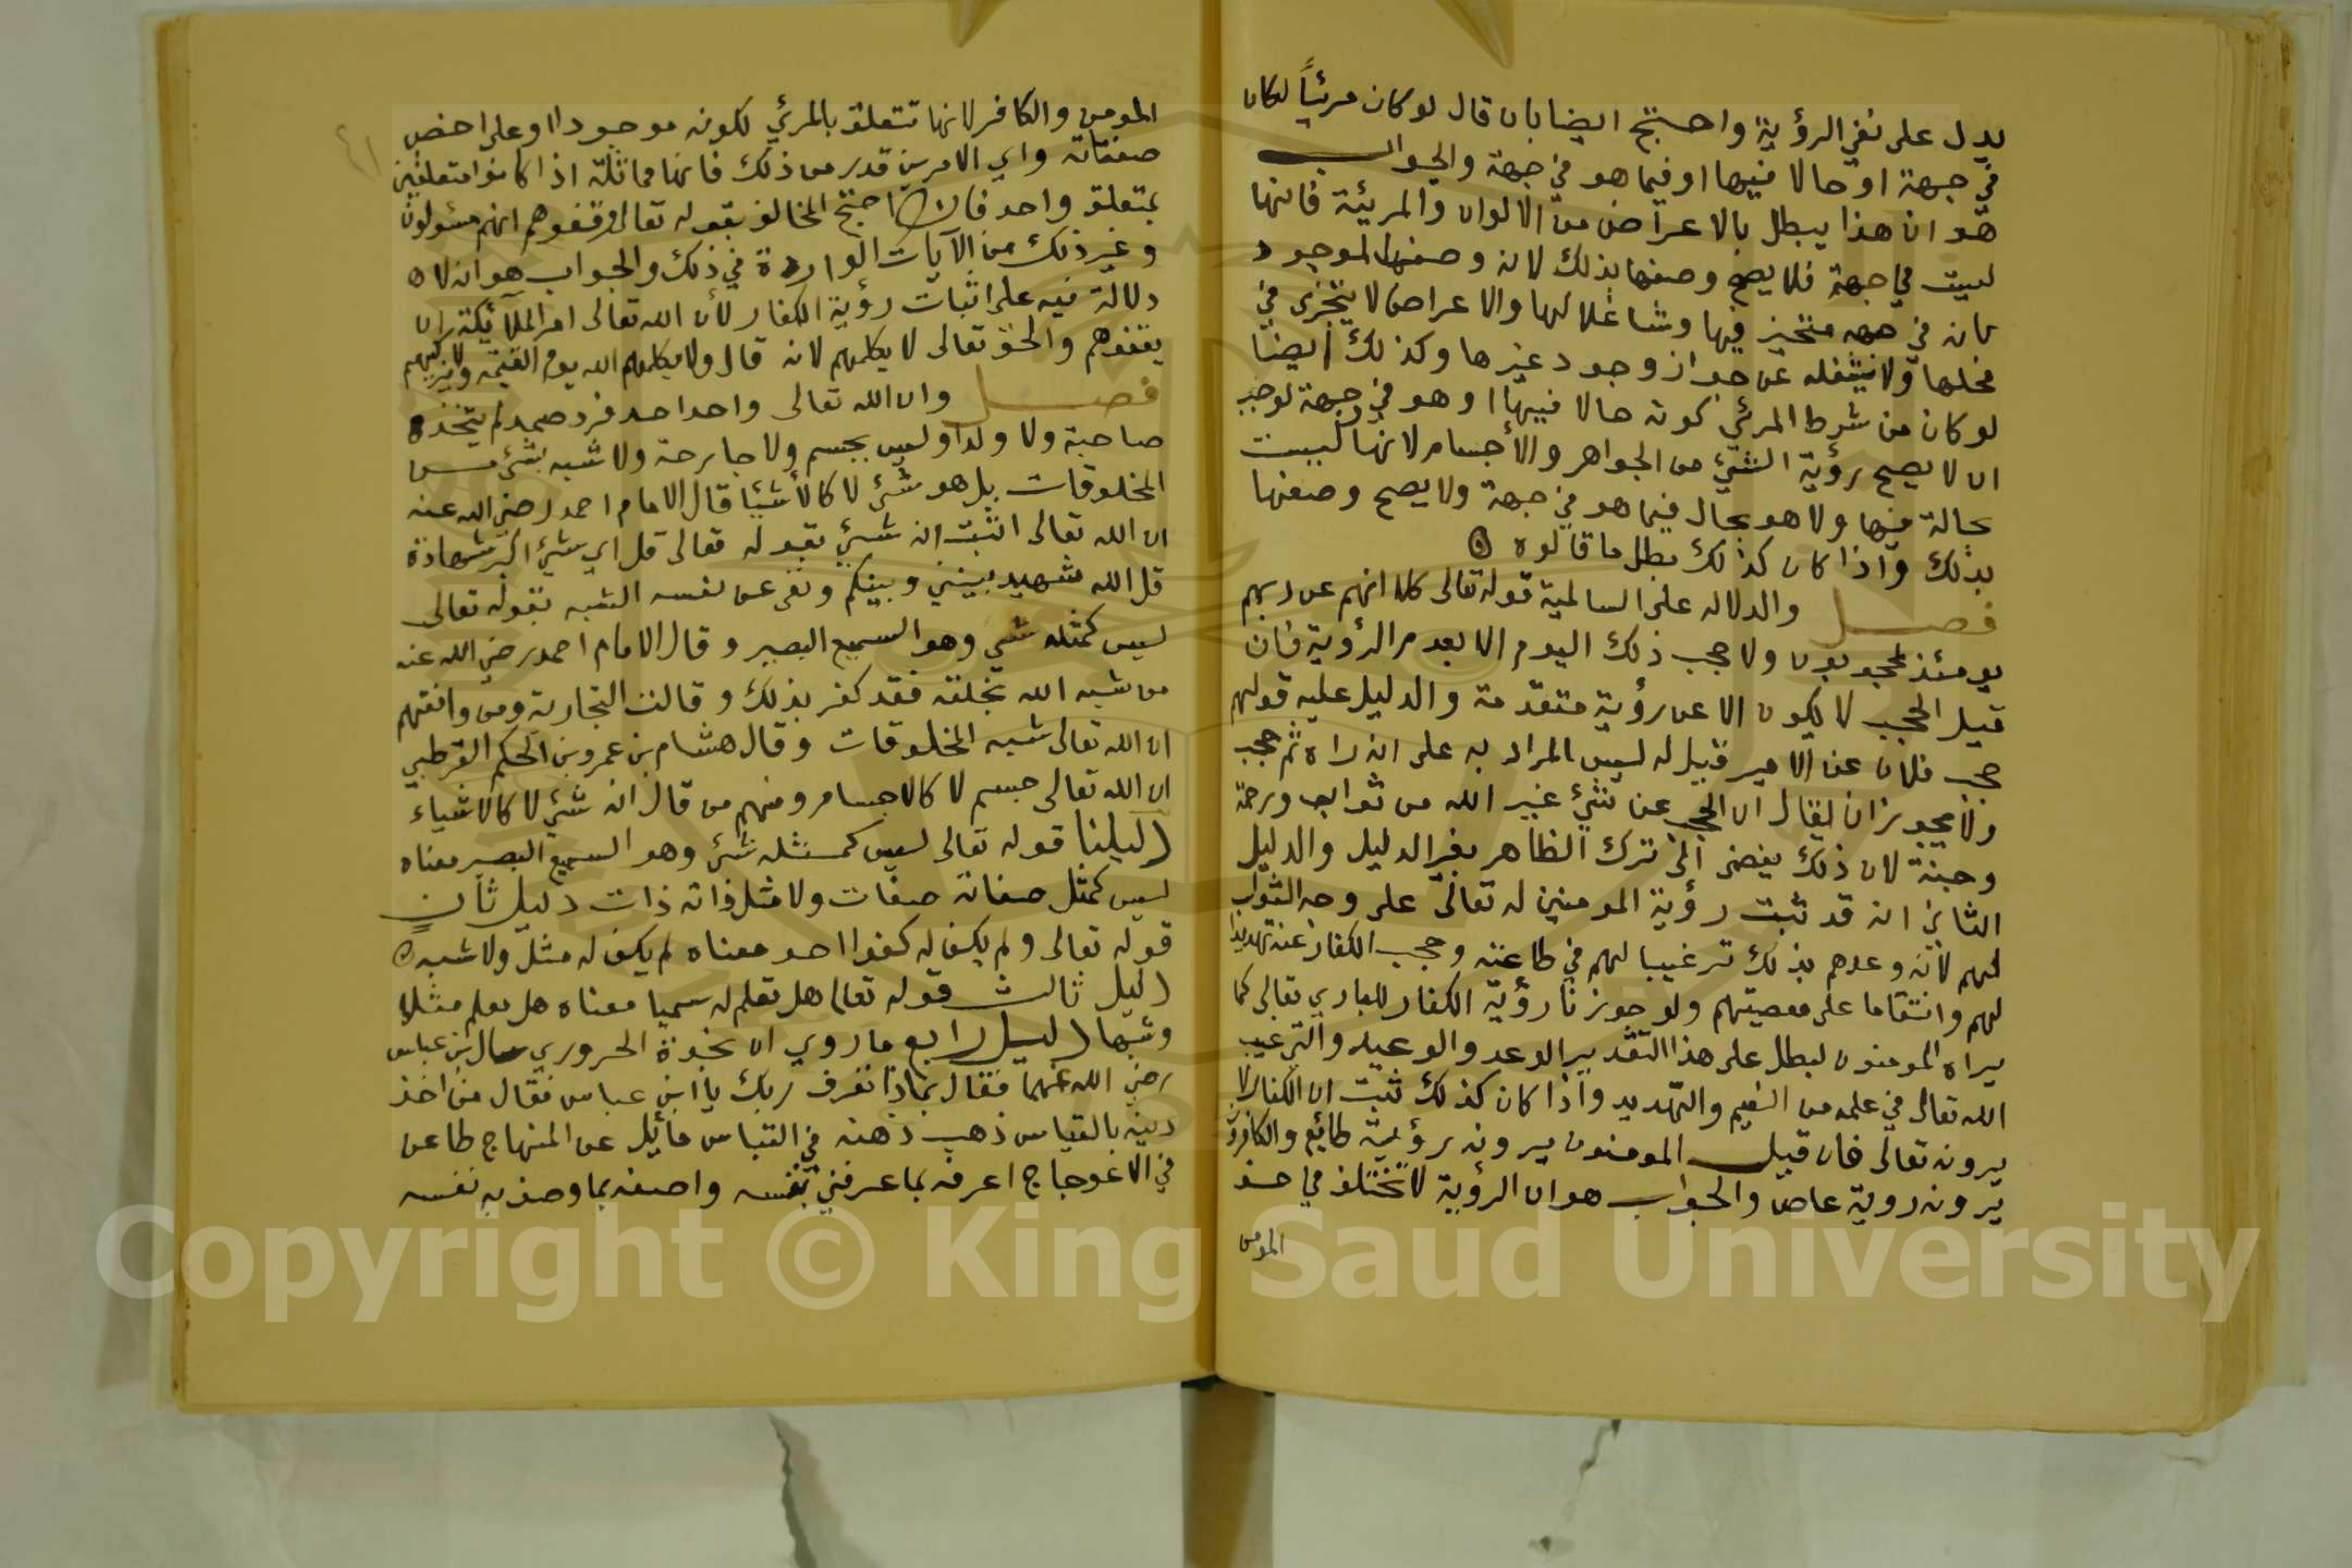 يدل على نفي الرؤية واحتج ايضا بان قال لو كان مرئياً لكان
في جهة او حالا فيها او فيما هو في جهة والجواب
هو ان هذا يبطل بالاعراض من الالوان والمريئة فانها
ليست في جهة فلا يصح وصفها بذلك لان وصفها لموجود
كان في جهه متحيز فيها وشاغلا لها والاعراض لا يتجزى في
محلها ولا يشغله عن جواز وجود غيرها وكذلك ايضا
لو كان من شرط المرئي كونه حالا فيها او هو في جهة لوجب
ان لا يصح رؤية الشيء من الجواهر والأجسام لانها ليست
بحالة فيها ولا هو بحال فيما هو في جهة ولا يصح وصفها
بذلك واذا كان كذلك بطل ما قالوه
فصل والدلاله على السالمية قوله تعالى كلا انهم عن ربهم
يومئذ لمحجوبون ولا حجب ذلك اليوم الا بعدم الرؤية فان
قيل الحجب لا يكون الا عن رؤية متقدمة والدليل عليه قولهم
حجب فلان عن الامير قيل له ليس المراد به على انه راه ثم حجب
ولا يجوز ان يقال ان الحجب عن شيء غير الله من ثوابه ورحمة
وجنة لان ذلك يفضى الى ترك الظاهر بغير الدليل والدليل
الثاني انه قد ثبت رؤية المومنين له تعالى على وجه الثواب
لهم لانه وعدهم بذلك ترغيبا لهم في طاعته وحجب الكفار عنه تهديدا
لهم وانتقاما على معصيتهم ولو جوزنا رؤية الكفار للباري تعالى كما
يراه المومنون لبطل على هذا التقدير الوعد والوعيد والترغيب
الله تعالى في علمه من النعيم والتهديد واذا كان كذلك ثبت ان الكفار لا
يرونه تعالى فان قيل المومنون يرونه رؤية طائع والكافرون
يرونه روية عاص والجواب هو ان الرؤية لا تختلف في حق
المومن
المومن والكافر لانها تتعلق بالمرئي لكونه موجودا او على اخص
صفاته واي الامرين قدر من ذلك فانها مماثلة اذا كانوا متعلقين
بمتعلق واحد فان احتج المخالف بقوله تعالى وقفوهم انهم مسئولون
وغير ذلك من الآيات الواردة في ذلك والجواب هو انه لا
دلالة فيه على اثبات رؤية الكفار لأن الله تعالى امر الملآئكة ان
يقفوهم والحق تعالى لا يكلمهم لانه قال ولا يكلمهم الله يوم القيمة ولا يزكيهم
فصل وان الله تعالى واحد احد فرد صمد لم يتخذ
صاحبة ولا ولدا وليس بجسم ولا جارحة ولا شبه بشيء من
المخلوقات بل هو شيء لا كالأشيا قال الامام احمد رضي الله عنه
ان الله تعالى اثبت انه شيء بقوله تعالى قل اي شيء اكبر شهادة
قل الله شهيد بيني وبينكم ونفى عن نفسه الشبه بقوله تعالى
ليس كمثله شي وهو السميع البصير وقال الامام احمد رضي الله عنه
من شبه الله بخلقه فقد كفر بذلك وقالت النجارية ومن وافقهم
ان الله تعالى شبه المخلوقات وقال هشام بن عمرو بن الحكم القرطبي
ان الله تعالى جسم لا كالاجسام ومنهم من قال انه شيء لا كالاشياء
دليلنا قوله تعالى ليس كمثله شيء وهو السميع البصير معناه
ليس كمثل صفاته صفات ولا مثل ذاته ذات دليل ثان
قوله تعالى ولم يكن له كفوا احد معناه لم يكن له مثل ولا شبه
دليل ثالث قوله تعالى هل تعلم له سميا معناه هل تعلم مثلا
وشبها دليل رابع ما روي ان نجدة الحروري سال ابن عباس
رضي الله عنهما فقال بماذا تعرف ربك يا ابن عباس فقال من اخذ
دينه بالقياس ذهب ذهنه في القياس مائل عن المنهاج طاعن
في الاعوجاج اعرفه بما عرفني بنفسه واصفه بما وصف به نفسه
Copyright © King Saud University